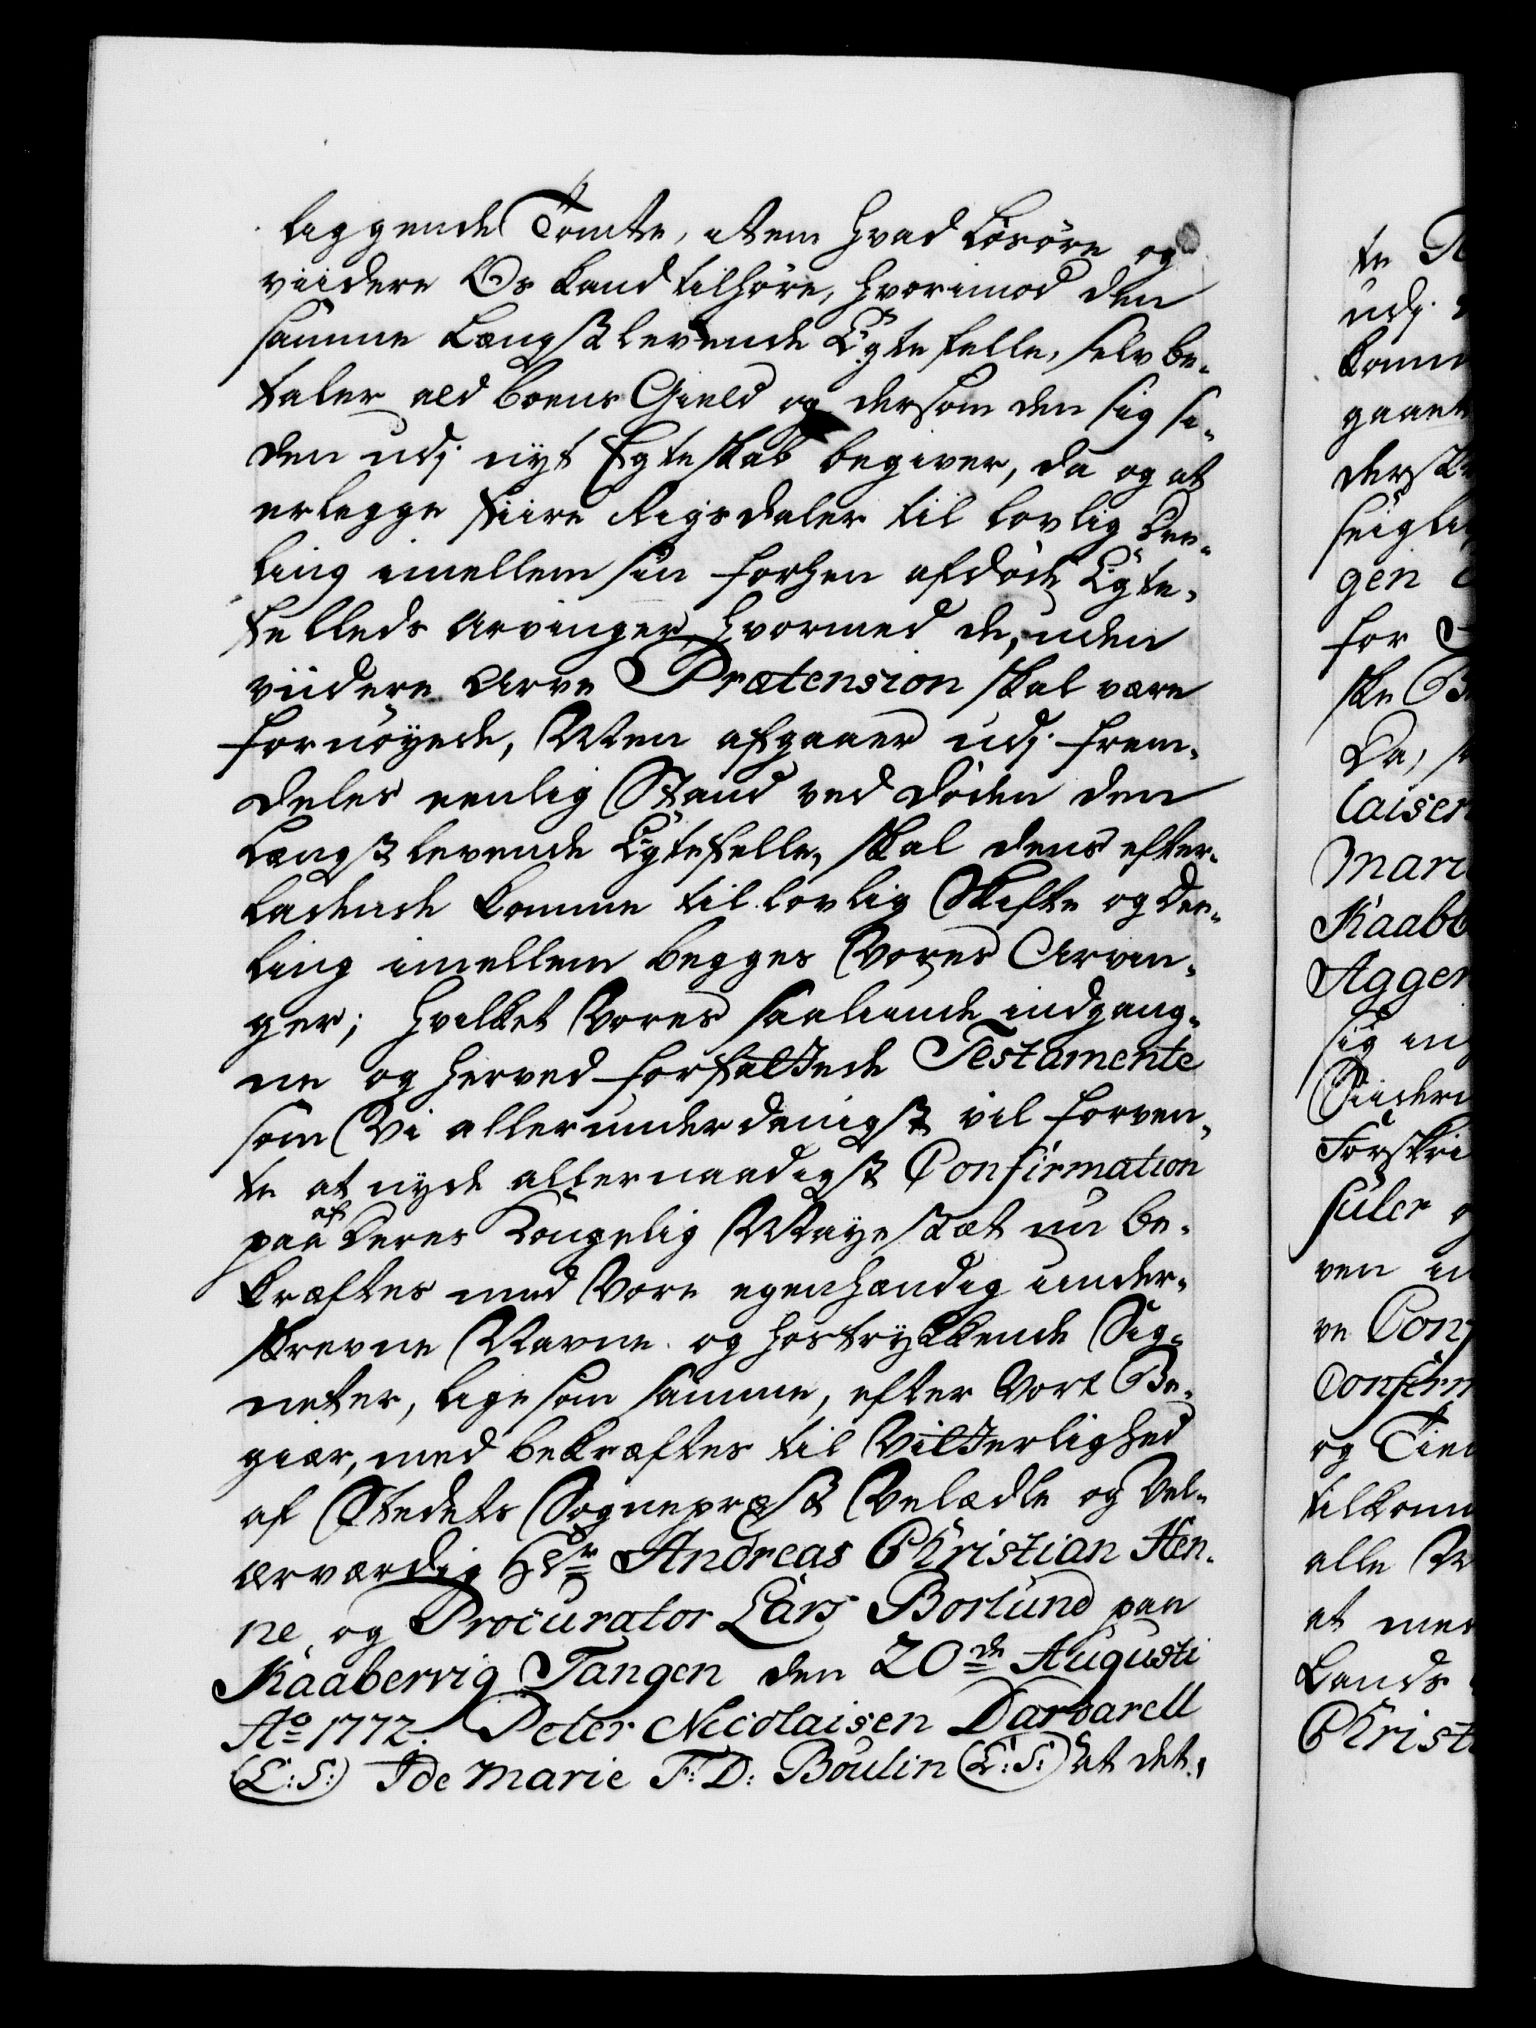 liggende Tomte, item hvad Løsøre og
viidere Os kand tilhøre, hvorimod den
samme Længstlevende Ægtefelle, selv be-
taler ald boens Gield og dersom den sig si-
den udj nyt Egteskab begiver, da og at
erlegge fiire Rigsdaler til lovlig Dee-
ling imellem sin forhen afdøde Ægte-
felleds Arvinger, hvormed de, uden
viidere Arve Prætension skal være
fornøyede, Men afgaaer udj frem-
deles eenlig Stand ved Døden den
Længstlevende Ægtefelle, skal dens efter-
ladende komme til lovlig Skifte og Dee-
ling imellem begges Vores Arvin-
ger; hvilket Vores saaliunde indgang-
ne og herved forfattede Testamente
som Vi allerunderdanigst vil forven-
te at nyde allernaadigst Confirmation
paa af Deres Kongelig Mayestæt nu be-
kræftes med Vore egenhændig under-
skrevne Navne og hostrykkende Sig-
neter, lige som samme, efter Vort Be-
giær, med bekræftes til Vitterlighed
af Stedets Sognepræst Velædle og Vel-
ærværdig Hr Andreas Christian Hen-
ne, og Procurator Lars Borlund paa
Kaabervig Tangen den 20de Augusti
Ao 1772. Peter Nicolaisen Darbarell
(L:S:) Ide Marie F: D: Boulin (L:S:) at det
te
udj
komm
gaaen
gen
for
ske
Da,
laisen
Mari
Kaab
Agger
sig
Forskri
ven
ve Conf
Confirm
og Tien
tilkom
alle
at
Lands
Christ